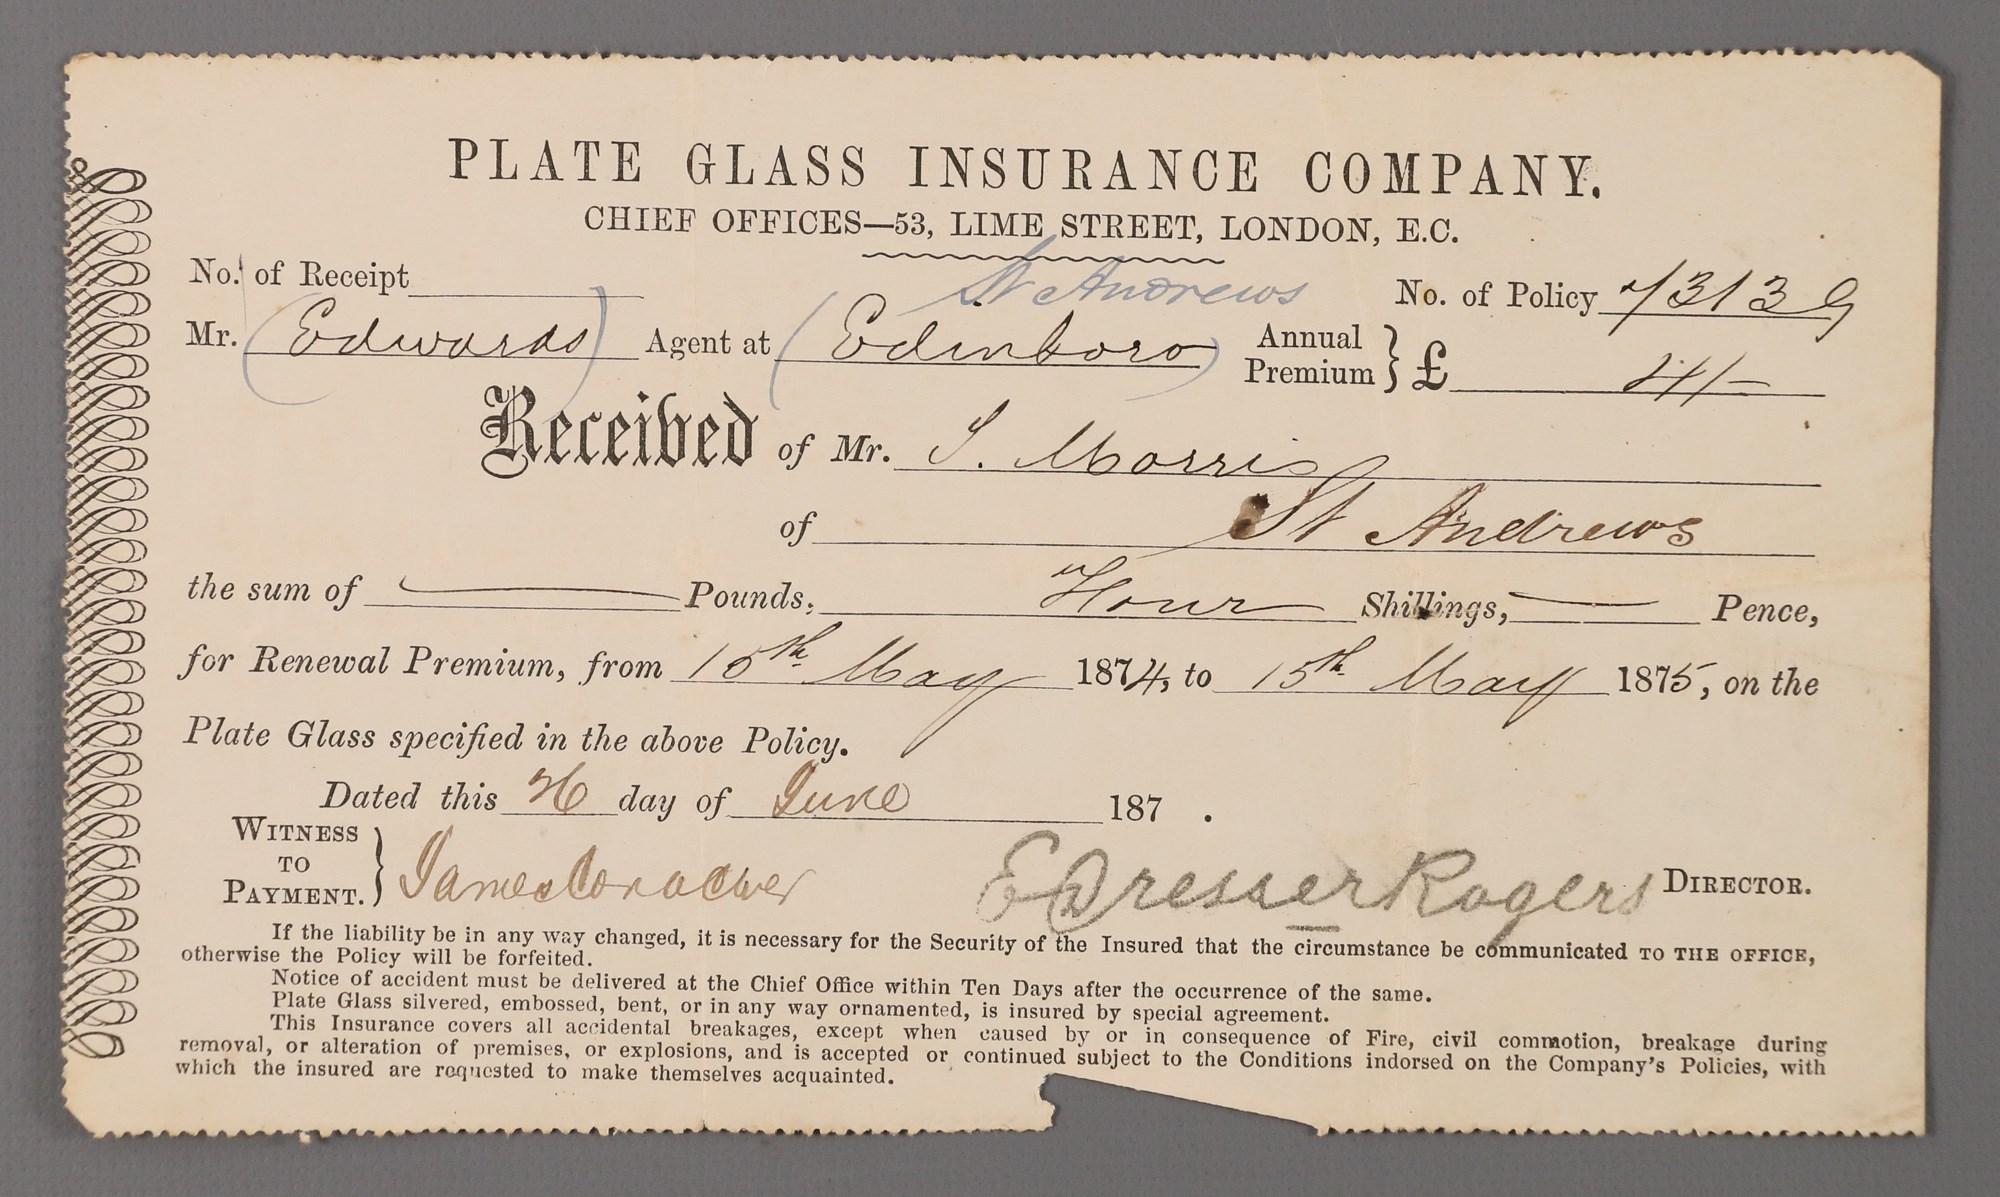 PLATE GLASS INSURANCE COMPANY.
CHIEF OFFICES—53, LIME STREET, LONDON, E.C.
No. of Receipt
St Andrews
No. of Policy 73139
Mr. (Edwards) Agent at (Edinboro) Annual Premium } £ 4/-
Received of Mr. T. Morris
of St Andrews
the sum of — Pounds, Four Shillings, — Pence,
for Renewal Premium, from 15th May 1874, to 15th May 1875, on the
Plate Glass specified in the above Policy.
Dated this 26 day of June 187 .
WITNESS TO PAYMENT. } James Conacher
E Dresser Rogers DIRECTOR.
If the liability be in any way changed, it is necessary for the Security of the Insured that the circumstance be communicated TO THE OFFICE,
otherwise the Policy will be forfeited.
Notice of accident must be delivered at the Chief Office within Ten Days after the occurrence of the same.
Plate Glass silvered, embossed, bent, or in any way ornamented, is insured by special agreement.
This Insurance covers all accidental breakages, except when caused by or in consequence of Fire, civil commotion, breakage during
removal, or alteration of premises, or explosions, and is accepted or continued subject to the Conditions indorsed on the Company's Policies, with
which the insured are requested to make themselves acquainted.